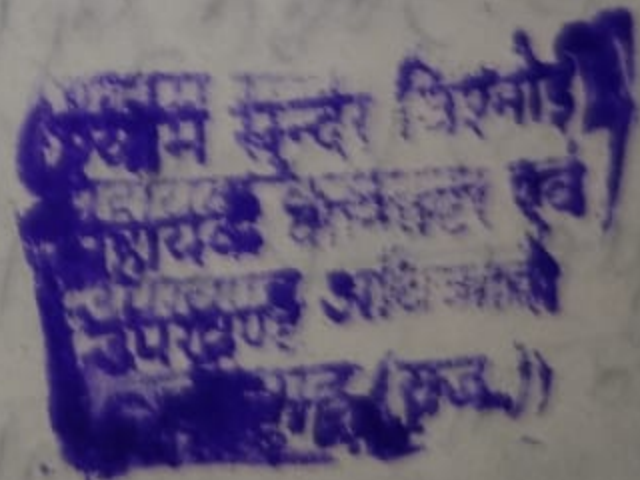 श्याम सुन्दर बिश्नोई
सहायक कलेक्टर एवं
उपखण्ड अधिकारी
(राज.)